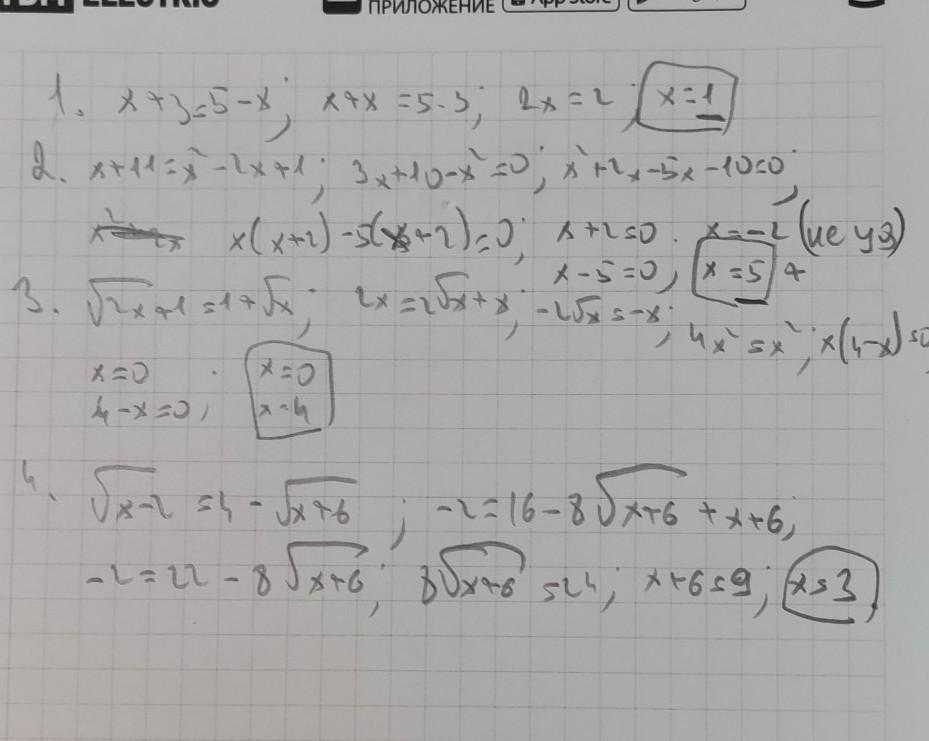 ELECTRIC ПРИЛОЖЕНИЕ App Store
1. x+3=5-x; x+x=5-3; 2x=2; x=1
2. x+11=x²-2x+1; 3x+10-x²=0; x²+2x-5x-10=0;
x(x+2)-5(x+2)=0; x+2=0. x=-2 (не уз)
x-5=0, x=5 +
3. √2x+1=1+√x; 2x=2√x+x; -2√x=-x; 4x²=x²; x(4-x)=0
x=0 x=0
4-x=0, x=4
4. √x-2 =4-√x+6; -2=16-8√x+6+x+6;
-2=22-8√x+6; 8√x+6=24; x+6=9; x=3